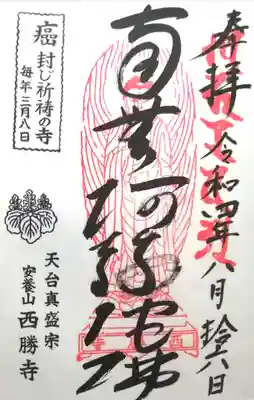 奉拝 令和四年八月拾八日
南無阿弥陀佛
癌封じ祈祷の寺
毎年三月八日
天台真盛宗
安養山 西勝寺